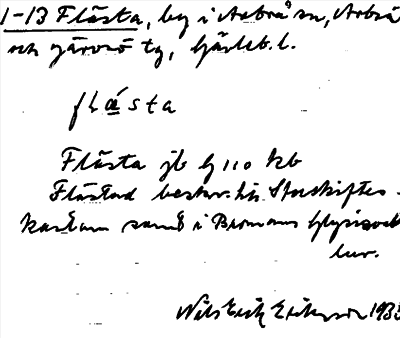 1-13 Flästa, by i Arbrå sn, Arbrå
och Järvsö tg, Gävleb. l.
flásta
Flästa jb G 110 kb
Flästad beskr. till Storskiftes-
kartan samt i Bromans Glysisvall
lur.
Nils Erik Eriksson 1933